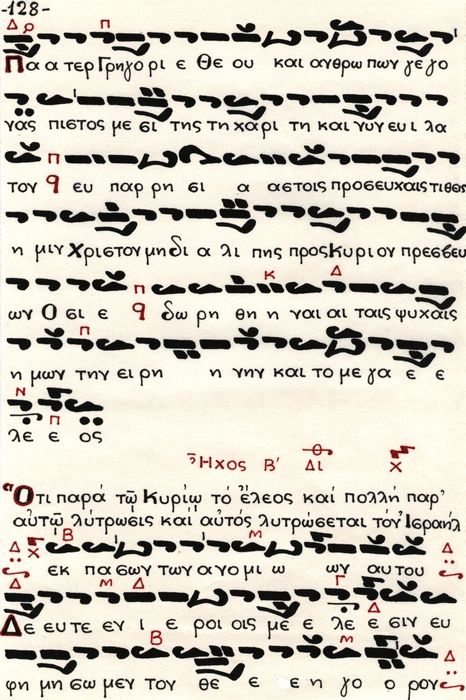 -128-
Πα α τερ Γρηγο ρι ε Θε ου και ανθρω πων γεγο
νας πιστος με σι της τη χαρι τη και νυν ευ ι λα
τον q ευ παρ ρη σι α α στοις προσευχαις τιθες
η μιν Χριστον μη δι α λι πης προς Κυριον πρεσβευ
ων Ο σι ε q δω ρη θη η ναι αι ταις ψυχαις
η μων την ει ρη η νην και το με γα ε ε
λε ε ος
Ἦχος Β′ Δι
Ὅτι παρά τῶ Κυρίω τό ἔλεος καί πολλή παρ'
αὐτῶ λύτρωσις καί αὐτός λυτρώσεται τόν Ἰσραήλ
εκ πασων των ανο μι ω ων αυτου
Δε ευτε εν ι ε ροι οις με ε λε ε σιν ευ
φη μη σω μεν τον θε ε ε η γο ο ρον